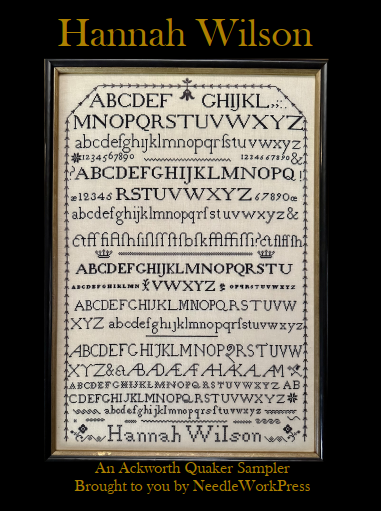 Hannah Wilson
ABCDEF GHIJKL,;:.
MNOPQRSTUVWXYZ
abcdefghijklmnopqrſstuvwxyz
1234567890 1234567890&
?ABCDEFGHIJKLMNOPQ!
æ12345 RSTUVWXYZ 67890œ
abcdefghijklmnopqrſstuvwxyz&
ABCDEFGHIJKLMNOPQRSTU
ABCDEFGHIJKLMN VWXYZ OPQRSTUVWXYZ
ABCDEFGHIJKLMNOPQRSTUVW
XYZ abcdefghijklmnopqrſstuvwxyz
ABCDEFGHIJKLMNOPQRSTUVW
XYZ&
ABCDEFGHIJKLMNOPQRSTUVWXYZ AB
CDEFGHIJKLMNOPQRSTUVWXYZ
abcdefghijklmnopqrſstuvwxyz
Hannah Wilson
An Ackworth Quaker Sampler
Brought to you by NeedleWorkPress